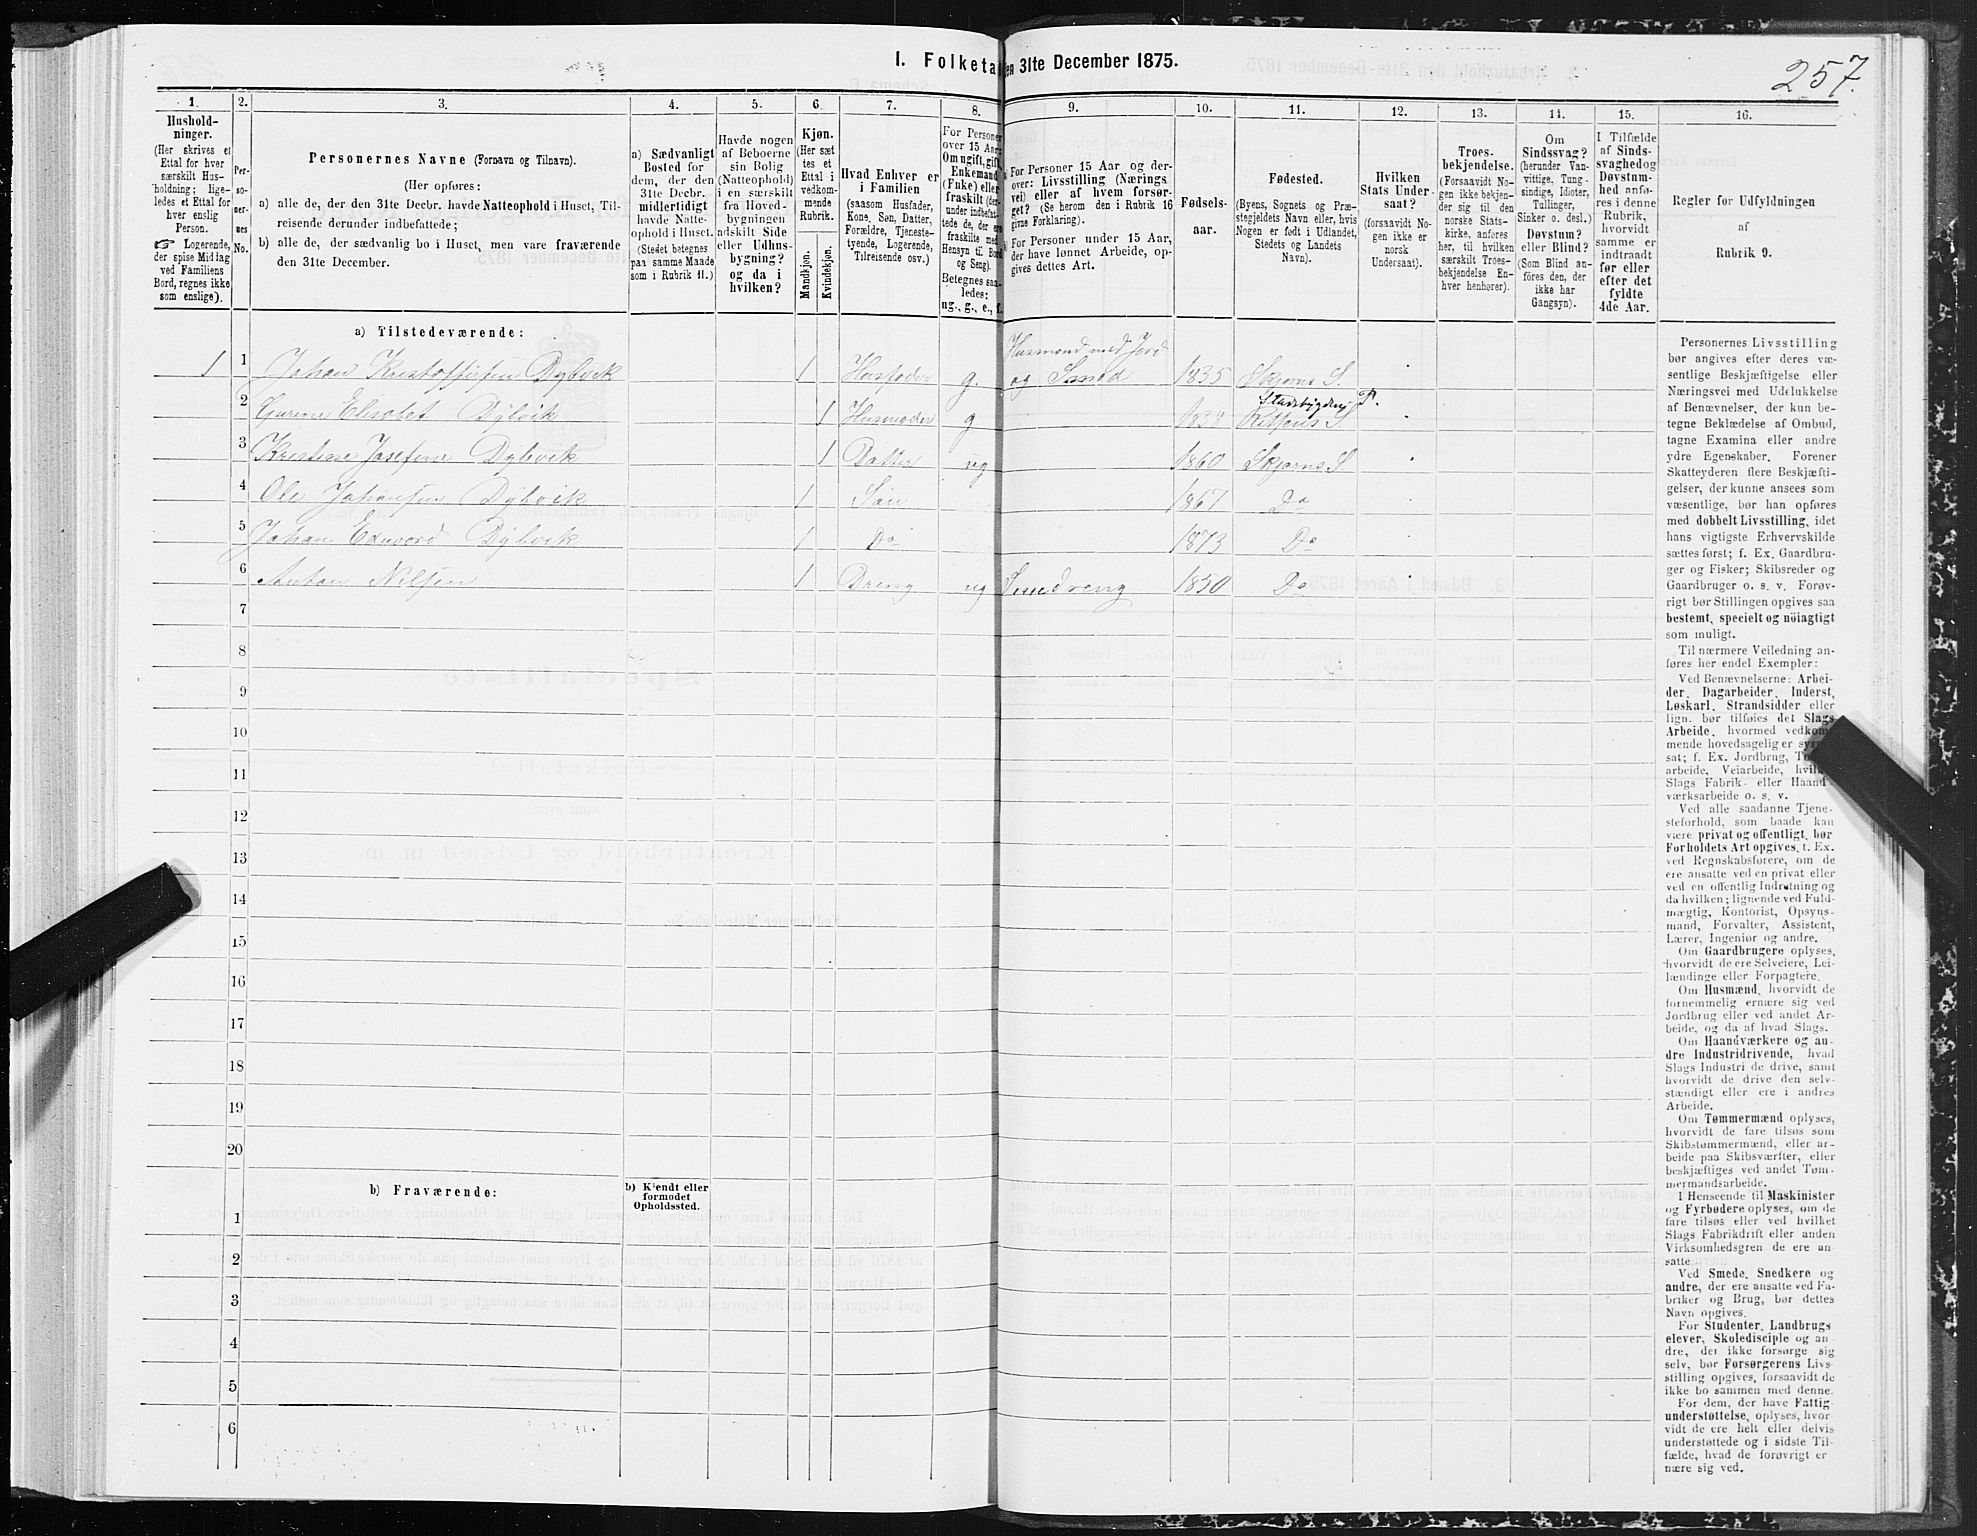 I. Folketa
en 31te December 1875.
257.
1.
2.
3.
4.
5.
6.
7.
8.
9.
10.
11.
12.
13.
14.
15.
16.
Hushold-
ninger.
(Her skrives et
Ettal for hver
særskilt Hus-
holdning; lige-
ledes et Ettal for
hver enslig
Person.
☞ Logerende,
der spise Middag
ved Familiens
Bord, regnes ikke
som enslige).
Per-
so-
ner-
nes
No.
Personernes Navne (Fornavn og Tilnavn).
(Her opføres:
a) alle de, der den 31te Decbr. havde Natteophold i Huset, Til-
reisende derunder indbefattede;
b) alle de, der sædvanlig bo i Huset, men vare fraværende
den 31te December.
a) Sædvanligt
Bosted for
dem, der den
31te Decbr.
midlertidigt
havde Natte-
ophold i Huset.
(Stedet betegnes
paa samme Maade
som i Rubrik 11.)
Havde nogen
af Beboerne
sin Bolig
(Natteophold)
i en særskilt
fra Hoved-
bygningen
adskilt Side
eller Udhus-
bygning?
og da i
hvilken?
Kjøn.
(Her sæt
tes et
Ettal i
vedkom-
mende
Rubrik.
Mandkjøn.
Kvindekjøn.
Hvad Enhver er
i Familien
(saasom Husfader,
Kone, Søn, Datter,
Forældre, Tjeneste-
tyende, Logerende,
Tilreisende osv.)
For Personer
over 15 Aar:
Om ugift, gift,
Enkemand
(Enke) eller
fraskilt (der-
under indbefat-
tede de, der ere
fraskilte med
Hensyn til Bord
og Seng).
Betegnes saa-
ledes:
ug., g., e., f.
For Personer 15 Aar og der-
over: Livsstilling (Nærings
vei) eller af hvem forsør-
get? (Se herom den i Rubrik 16
givne Forklaring).
For Personer under 15 Aar,
der have lønnet Arbeide, op-
gives dettes Art.
Fødsels-
aar.
Fødested.
(Byens, Sognets og Præ-
stegjeldets Navn eller, hvis
Nogen er født i Udlandet,
Stedets og Landets
Navn).
Hvilken
Stats Under-
saat?
(forsaavidt No-
gen ikke er
norsk
Undersaat).
Troes-
bekjendelse.
(Forsaavidt No-
gen ikke bekjen-
der sig til den
norske Stats-
kirke, anføres
her, til hvilken
særskilt Troes-
bekjendelse En-
hver henhører).
Om
Sindssvag?
(herunder Van-
vittige, Tung-
sindige, Idioter,
Tullinger,
Sinker o. desl.)
Døvstum?
eller Blind?
(Som Blind an-
føres den, der
ikke har
Gangsyn).
I Tilfælde
af Sinds-
svaghed og
Døvstum-
hed anfø-
res i denne
Rubrik,
hvorvidt
samme er
indtraadt
før eller
efter det
fyldte
4de Aar.
Regler for Udfyldningen
af
Rubrik 9.
a) Tilstedeværende:
Husmand med Jord
1 1 Johan Kristoffersen Dybvik 1 Husfader g. og Smed 1835 Skjørns S.
Stadsbygdens P.
2 Gurine Elisabet Dybvik 1 Husmoder g Rissens S.
3 Kristine Josefine Dybvik 1 Datter ug 1860 Skjørns S
4 Ole Johansen Dybvik 1 Søn 1867 Do
5 Johan Edvard Dybvik 1 Do 1873 Do
6 Anton Nilsen 1 Dreng ug Smedreng 1850 Do
7
8
9
10
11
12
13
14
15
16
17
18
19
20
b) Fraværende:
b) Kjendt eller
formodet
Opholdssted.
1
2
3
4
5
6
Personernes Livsstilling
bør angives efter deres væ-
sentlige Beskjæftigelse eller
Næringsvei med Udelukkelse
af Benævnelser, der kun be-
tegne Beklædelse af Ombud,
tagne Examina eller andre
ydre Egenskaber. Forener
Skatteyderen flere Beskjæfti-
gelser, der kunne ansees som
væsentlige, bør han opføres
med dobbelt Livsstilling, idet
hans vigtigste Erhvervskilde
sættes først; f. Ex. Gaardbru-
ger og Fisker; Skibsreder og
Gaardbruger o. s. v. Forøv-
rigt bør Stillingen opgives saa
bestemt, specielt og nöiagtigt
som muligt.
Til nærmere Veiledning an-
føres her endel Exempler:
Ved Benævnelserne: Arbei-
der, Dagarbeider, Inderst,
Løskarl, Strandsidder eller
lign. bør tilføies det Slags
Arbeide, hvormed vedkom-
mende hovedsagelig er syssel-
sat; f. Ex. Jordbrug,
arbeide, Veiarbeide, hvilket
Slags Fabrik- eller Haand-
værksarbeide o. s. v.
Ved alle saadanne Tjene-
steforhold, som baade kan
være privat og offentligt, bør
Forholdets Art opgives, t. Ex.
ved Regnskabsførere, om de
ere ansatte ved en privat eller
ved en offentlig Indretning og
da hvilken; lignende ved Fuld-
mægtig, Kontorist, Opsyns-
mand, Forvalter, Assistent,
Lærer, Ingeniør og andre.
Om Gaardbrugere oplyses,
hvorvidt de ere Selveiere, Lei-
lændinge eller Forpagtere.
Om Husmænd, hvorvidt de
fornemmelig ernære sig ved
Jordbrug eller ved andet Ar-
beide, og da af hvad Slags.
Om Haandværkere og an-
dre Industridrivende, hvad
Slags Industri de drive, samt
hvorvidt de drive den selv-
stændigt eller ere i andres
Arbeide.
Om Tømmermænd oplyses,
hvorvidt de fare tilsøs som
Skibstømmermænd, eller ar-
beide paa Skibsværfter, eller
beskjæftiges ved andet Tøm-
mermandsarbeide.
I Henseende til Maskinister
og Fyrbødere oplyses, om de
fare tilsøs eller ved hvilket
Slags Fabrikdrift eller anden
Virksomhedsgren de ere an-
satte.
Ved Smede, Snedkere og
andre, der ere ansatte ved Fa-
briker og Brug, bør dettes
Navn opgives.
For Studenter, Landbrugs
elever, Skoledisciple og an
dre, der ikke forsørge sig
selv, bør Forsørgerens Livs-
stilling opgives, forsaavidt de
ikke bo sammen med denne.
For dem, der have Fattig
understøttelse, oplyses, hvor-
vidt de ere helt eller delvis
understøttede og i sidste Til-
fælde, hvad de forøvrigt er
nære sig ved.